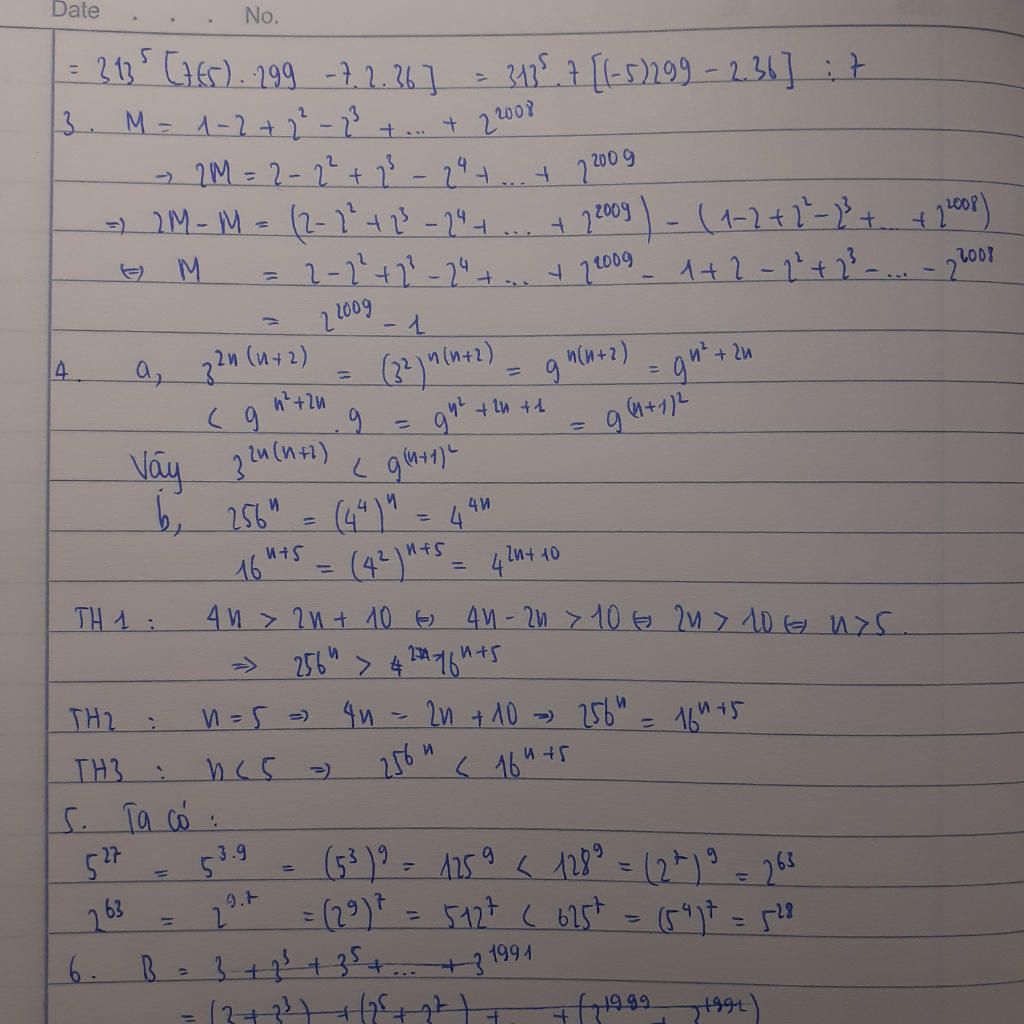 Date . . . No.
= 313^5 [7(-5).299 - 7.2.36] = 313^5.7 [(-5)299 - 2.36] ⋮ 7
3. M = 1 - 2 + 2^2 - 2^3 + ... + 2^2008
→ 2M = 2 - 2^2 + 2^3 - 2^4 + ... + 2^2009
⇒ 2M - M = (2 - 2^2 + 2^3 - 2^4 + ... + 2^2009) - (1 - 2 + 2^2 - 2^3 + ... + 2^2008)
⇔ M = 2 - 2^2 + 2^3 - 2^4 + ... + 2^2009 - 1 + 2 - 2^2 + 2^3 - ... - 2^2008
= 2^2009 - 1
4. a, 3^2n(n+2) = (3^2)^n(n+2) = 9^n(n+2) = 9^n^2+2n
< 9^n^2+2n . 9 = 9^n^2+2n+1 = 9^(n+1)^2
Vậy 3^2n(n+2) < 9^(n+1)^2
b, 256^n = (4^4)^n = 4^4n
16^n+5 = (4^2)^n+5 = 4^2n+10
TH1 : 4n > 2n + 10 ⇔ 4n - 2n > 10 ⇔ 2n > 10 ⇔ n > 5.
⇒ 256^n > 16^n+5
TH2 : n = 5 ⇒ 4n = 2n + 10 ⇒ 256^n = 16^n+5
TH3 : n < 5 ⇒ 256^n < 16^n+5
5. Ta có :
5^27 = 5^3.9 = (5^3)^9 = 125^9 < 128^9 = (2^7)^9 = 2^63
2^63 = 2^9.7 = (2^9)^7 = 512^7 < 625^7 = (5^4)^7 = 5^28
6. B = 3 + 3^3 + 3^5 + ... + 3^1991